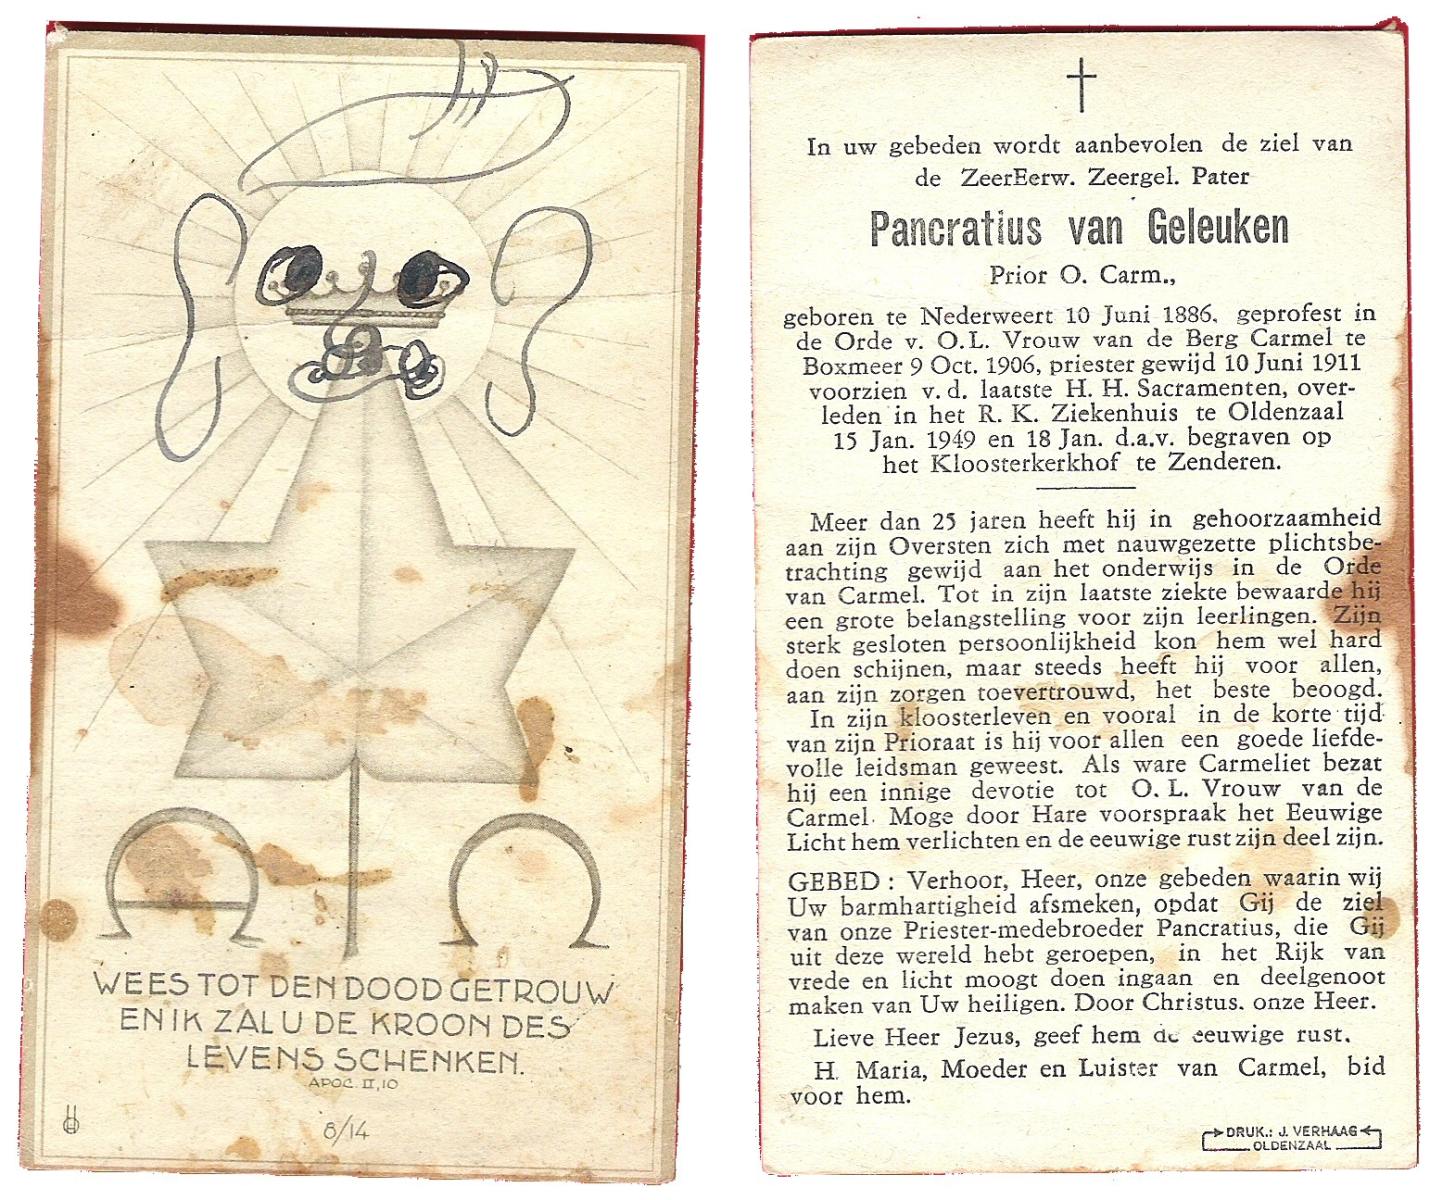 WEES TOT DEN DOOD GETROUW
EN IK ZAL U DE KROON DES
LEVENS SCHENKEN.
APOC. II, 10
8/14
In uw gebeden wordt aanbevolen de ziel van
de ZeerEerw. Zeergel. Pater
Pancratius van Geleuken
Prior O. Carm.,
geboren te Nederweert 10 Juni 1886, geprofest in
de Orde v. O.L. Vrouw van de Berg Carmel te
Boxmeer 9 Oct. 1906, priester gewijd 10 Juni 1911
voorzien v. d. laatste H. H. Sacramenten, over-
leden in het R. K. Ziekenhuis te Oldenzaal
15 Jan. 1949 en 18 Jan. d.a.v. begraven op
het Kloosterkerkhof te Zenderen.
Meer dan 25 jaren heeft hij in gehoorzaamheid
aan zijn Oversten zich met nauwgezette plichtsbe-
trachting gewijd aan het onderwijs in de Orde
van Carmel. Tot in zijn laatste ziekte bewaarde hij
een grote belangstelling voor zijn leerlingen. Zijn
sterk gesloten persoonlijkheid kon hem wel hard
doen schijnen, maar steeds heeft hij voor allen,
aan zijn zorgen toevertrouwd, het beste beoogd.
In zijn kloosterleven en vooral in de korte tijd
van zijn Prioraat is hij voor allen een goede liefde-
volle leidsman geweest. Als ware Carmeliet bezat
hij een innige devotie tot O. L. Vrouw van de
Carmel. Moge door Hare voorspraak het Eeuwige
Licht hem verlichten en de eeuwige rust zijn deel zijn.
GEBED : Verhoor, Heer, onze gebeden waarin wij
Uw barmhartigheid afsmeken, opdat Gij de ziel
van onze Priester-medebroeder Pancratius, die Gij
uit deze wereld hebt geroepen, in het Rijk van
vrede en licht moogt doen ingaan en deelgenoot
maken van Uw heiligen. Door Christus. onze Heer.
Lieve Heer Jezus, geef hem de eeuwige rust.
H. Maria, Moeder en Luister van Carmel, bid
voor hem.
DRUK.: J. VERHAAG
OLDENZAAL